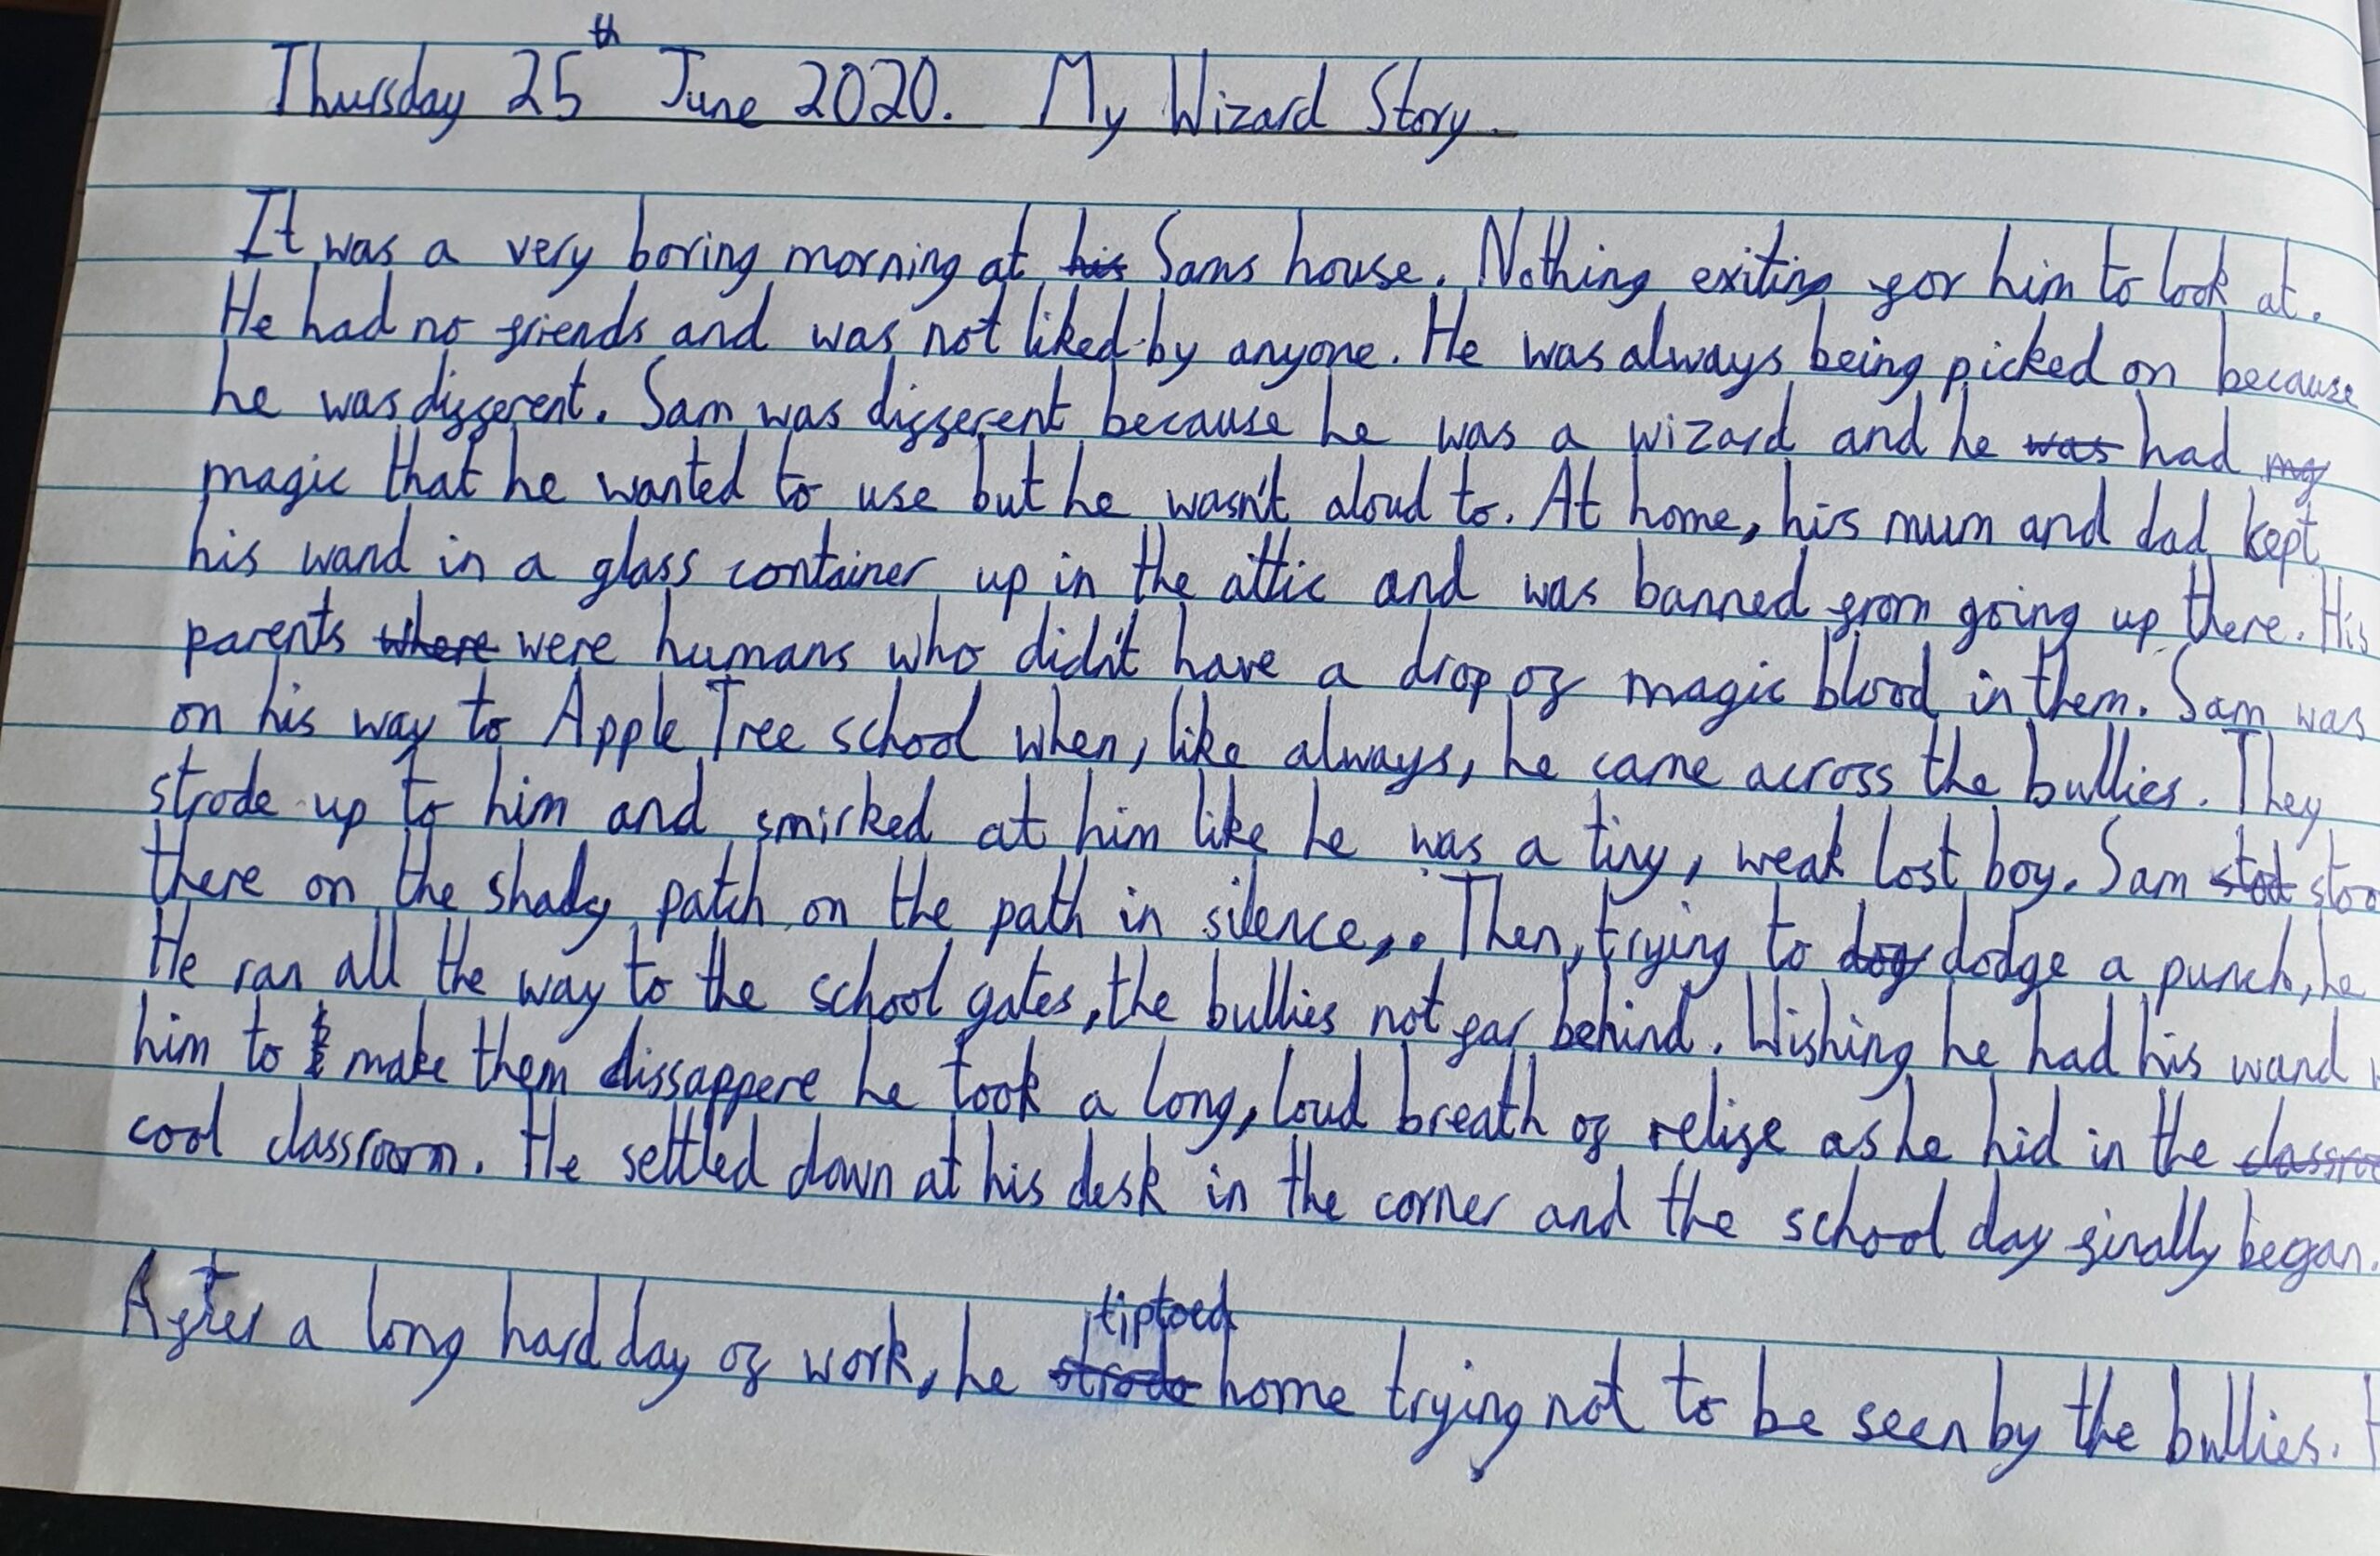 Thursday 25th June 2020. My Wizard Story.
It was a very boring morning at his Sams house. Nothing exiting for him to look at.
He had no friends and was not liked by anyone. He was always being picked on because
he was different. Sam was different because he was a wizard and he was had mg
magic that he wanted to use but he wasn't aloud to. At home, his mum and dad kept
his wand in a glass container up in the attic and was banned from going up there. His
parents where were humans who didn't have a drop of magic blood in them. Sam was
on his way to Apple Tree school when, like always, he came across the bullies. They
strode up to him and smirked at him like he was a tiny, weak lost boy. Sam stod stoo
there on the shady patch on the path in silence,. Then, trying to dog dodge a punch, he
He ran all the way to the school gates, the bullies not far behind. Wishing he had his wand
him to make them dissappere he took a long, loud breath of relife as he hid in the classroo
cool classroom. He settled down at his desk in the corner and the school day finally began.
tiptoed
After a long hard day of work, he strode home trying not to be seen by the bullies.